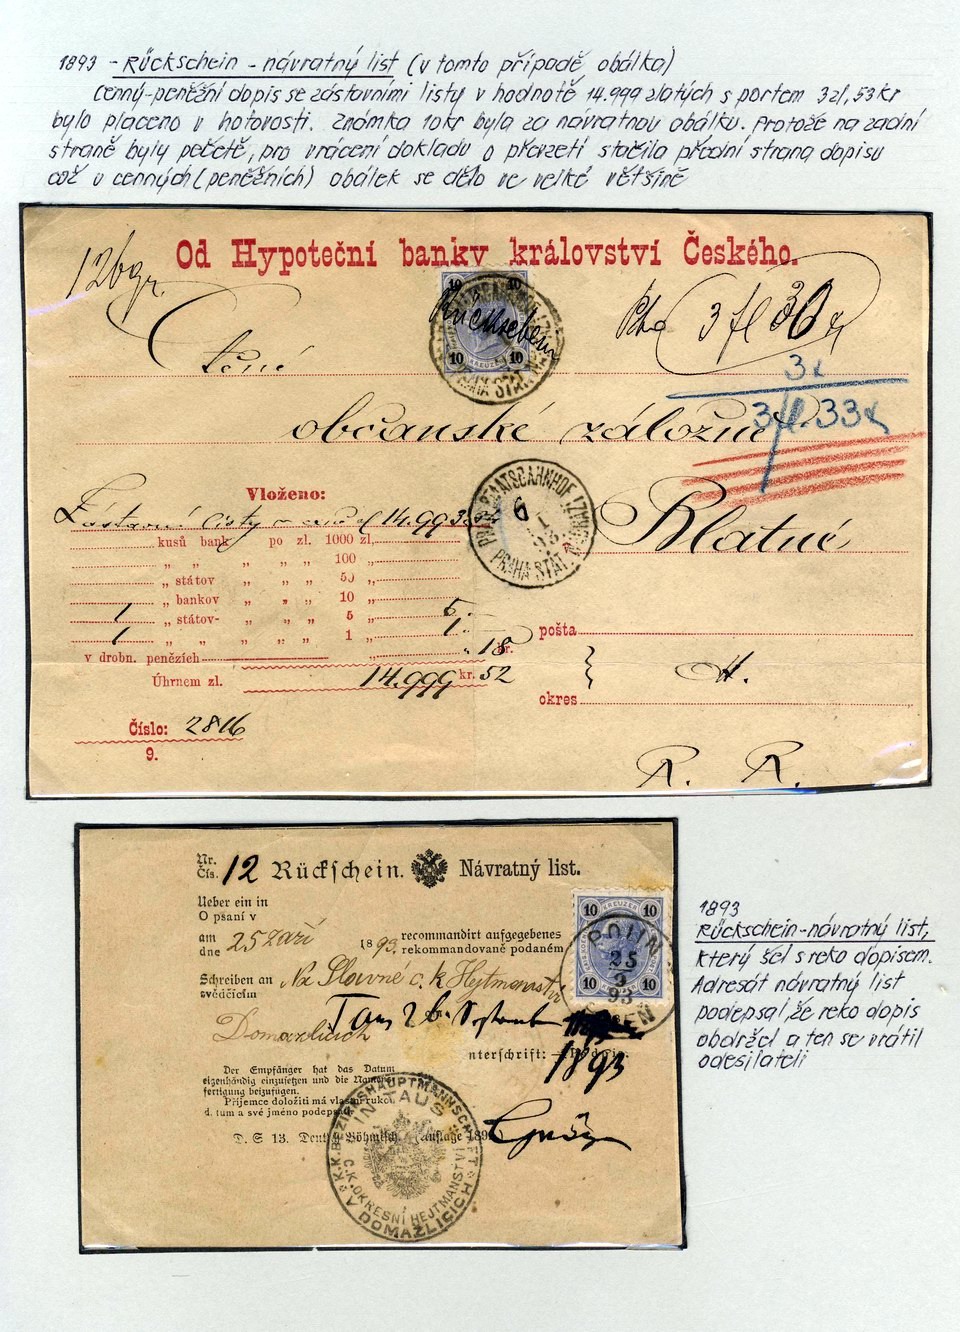 1893 - Rückschein - návratný list (v tomto případě obálka)
Cenný-peněžní dopis se zástavními listy v hodnotě 14.999 zlatých s portem 3 zl, 53 kr
bylo placeno v hotovosti. Známka 10 kr byla za návratnou obálku. Protože na zadní
straně byly pečetě, pro vrácení dokladu o převzetí stačila přední strana dopisu
což u cenných (peněžních) obálek se dělo ve velké většině
Od Hypoteční banky království Českého.
126 gr.
10 10
Rückschein
10 KREUZER 10
PRAHA STÁT.
3 fl 30 x
3 x
3 fl. 33 x
ctené
občanské záložně
Vloženo:
Zástavní listy
14.993
PRAG STAATSBAHNHOF (ZNANZ)
6
I
93
PRAHA STÁT.
Blatné
kusů bank. po zl. 1000 zl.
" " " " " 100 "
" státov " " " 50 "
" bankov " " " 10 "
1 " státov- " " " 5 " 5.
1 " " " " " 1 " 1.
v drobn. penězích " 18 kr.
Úhrnem zl. 14.999 kr. 52
pošta
okres
Číslo: 2816
9.
R. R.
Nr.
Čís. 12 Rückschein. Návratný list.
Ueber ein in
O psaní v
am
dne 25 září 1893, recommandirt aufgegebenes
rekommandovaně podaném
Schreiben an
svědčícím Na Slavné c. k. Hejtmanství
Domažlicích
10 KREUZER 10
10 10
25
9
93
Taus 26 Septembr
1893
nterschrift:
Der Empfänger hat das Datum
eigenhändig einzusetzen und die Namens-
fertigung beizufügen.
Příjemce doložiti má vlastní rukou
d. tum a své jméno podepsa
D. S 13. Deutsch Böhmisch. Auflage 189
K.K. BEZIRKSHAUPTMANNSCHAFT
IN TAUS
C.K. OKRESNÍ HEJTMANSTVÍ
V DOMAŽLICÍCH
1893
Rückschein-návratný list,
který šel s reko dopisem.
Adresát návratný list
podepsal, že reko dopis
obdržel a ten se vrátil
odesílateli